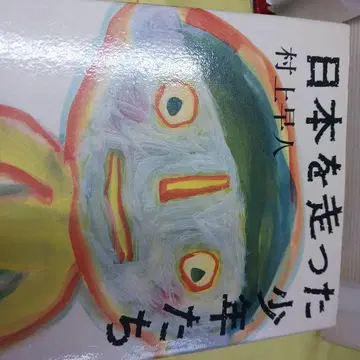 日本を走った少年たち
村上早人